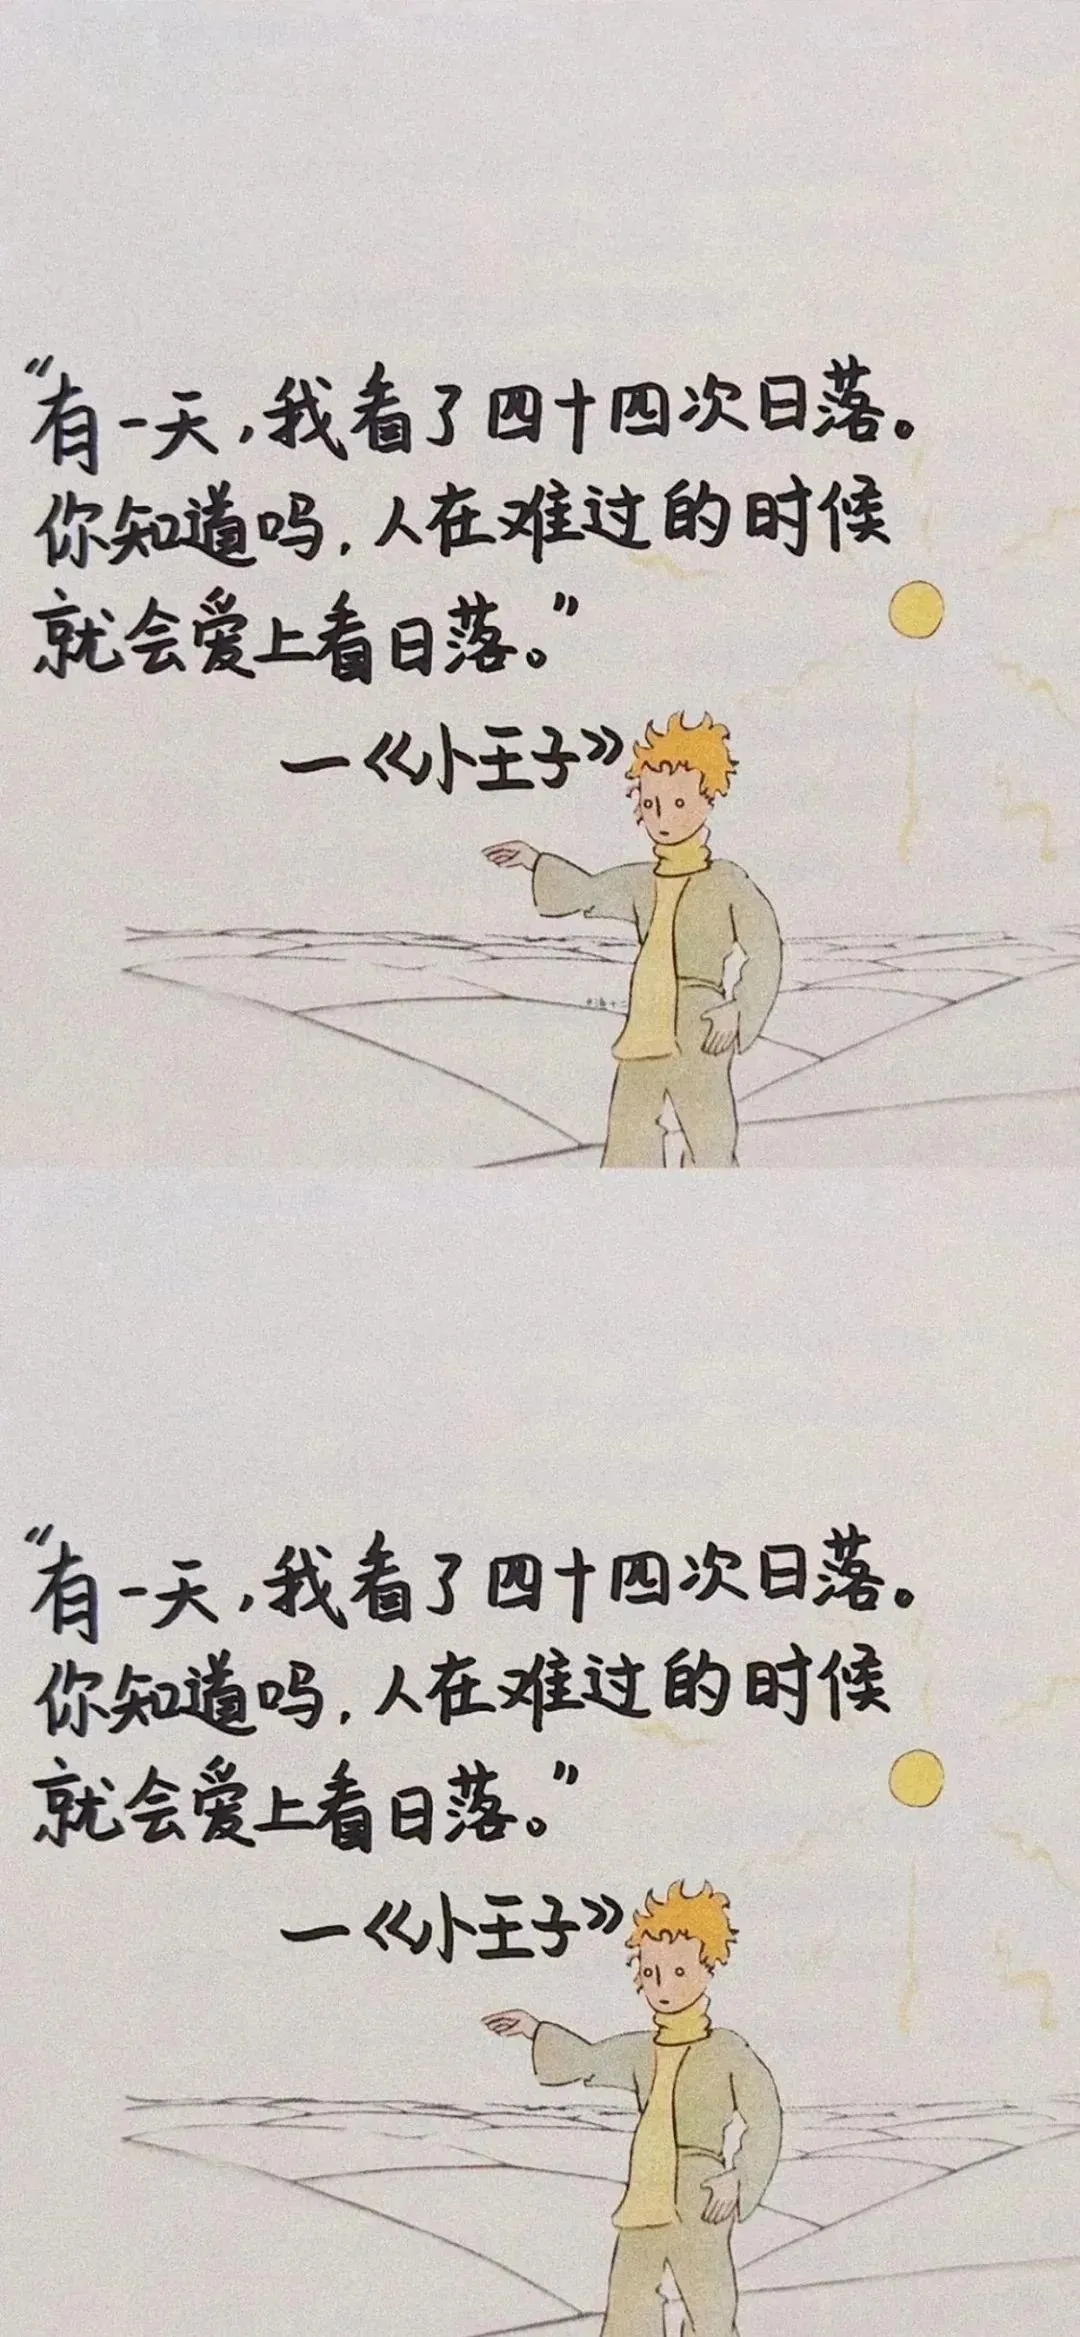 “有一天,我看了四十四次日落。
你知道吗,人在难过的时候
就会爱上看日落。”
—《小王子》
“有一天,我看了四十四次日落。
你知道吗,人在难过的时候
就会爱上看日落。”
—《小王子》